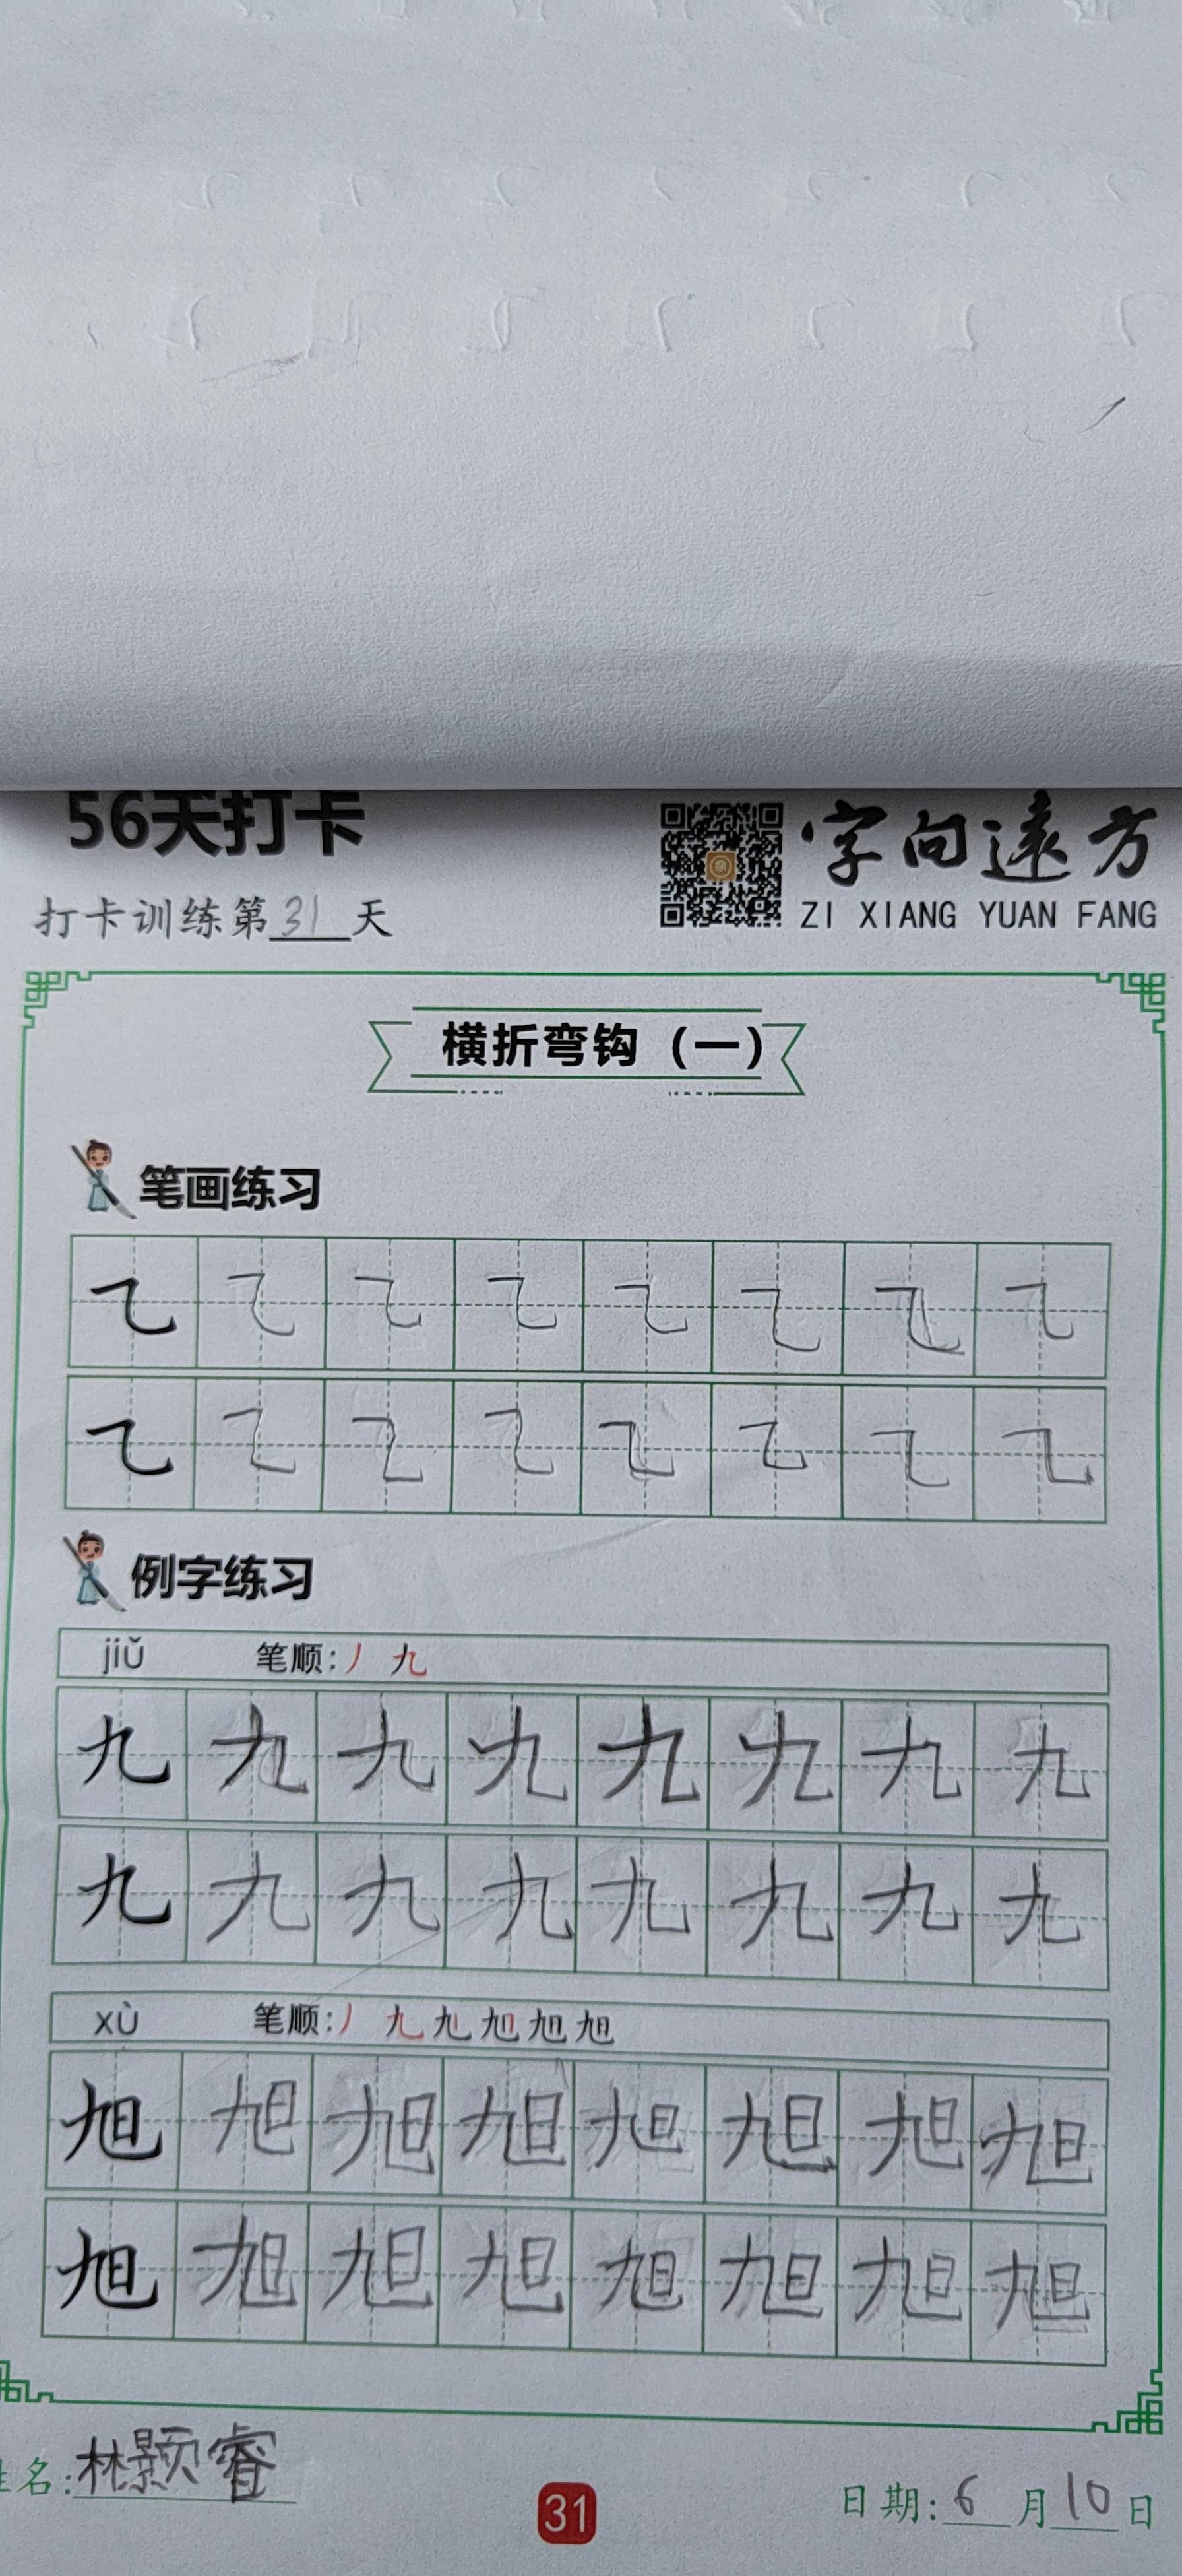 56天打卡
字向遠方
打卡训练第31天
ZI XIANG YUAN FANG
横折弯钩（一）
笔画练习
㇈ ㇈ ㇈ ㇈ ㇈ ㇈ ㇈ ㇈
㇈ ㇈ ㇈ ㇈ ㇈ ㇈ ㇈ ㇈
例字练习
jiǔ 笔顺:丿 九
九 九 九 九 九 九 九 九
九 九 九 九 九 九 九 九
xù 笔顺:丿 九 旭 旭 旭
旭 旭 旭 旭 旭 旭 旭 旭
旭 旭 旭 旭 旭 旭 旭 旭
姓名:林颢睿
31
日期:6月10日